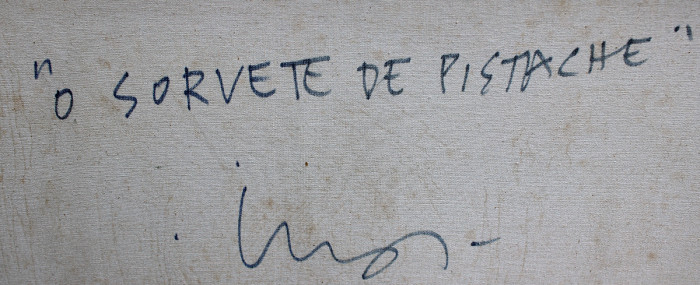 "O SORVETE DE PISTACHE"